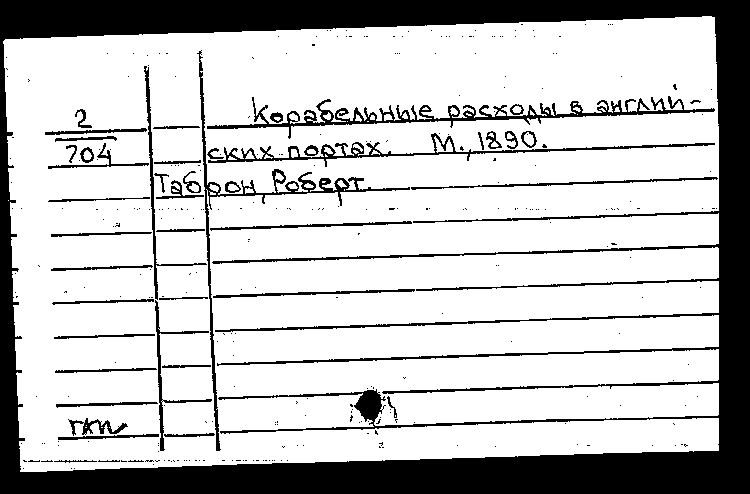 Корабельные расходы в англий-
2
704
ских портах. М., 1890.
Таброн, Роберт.